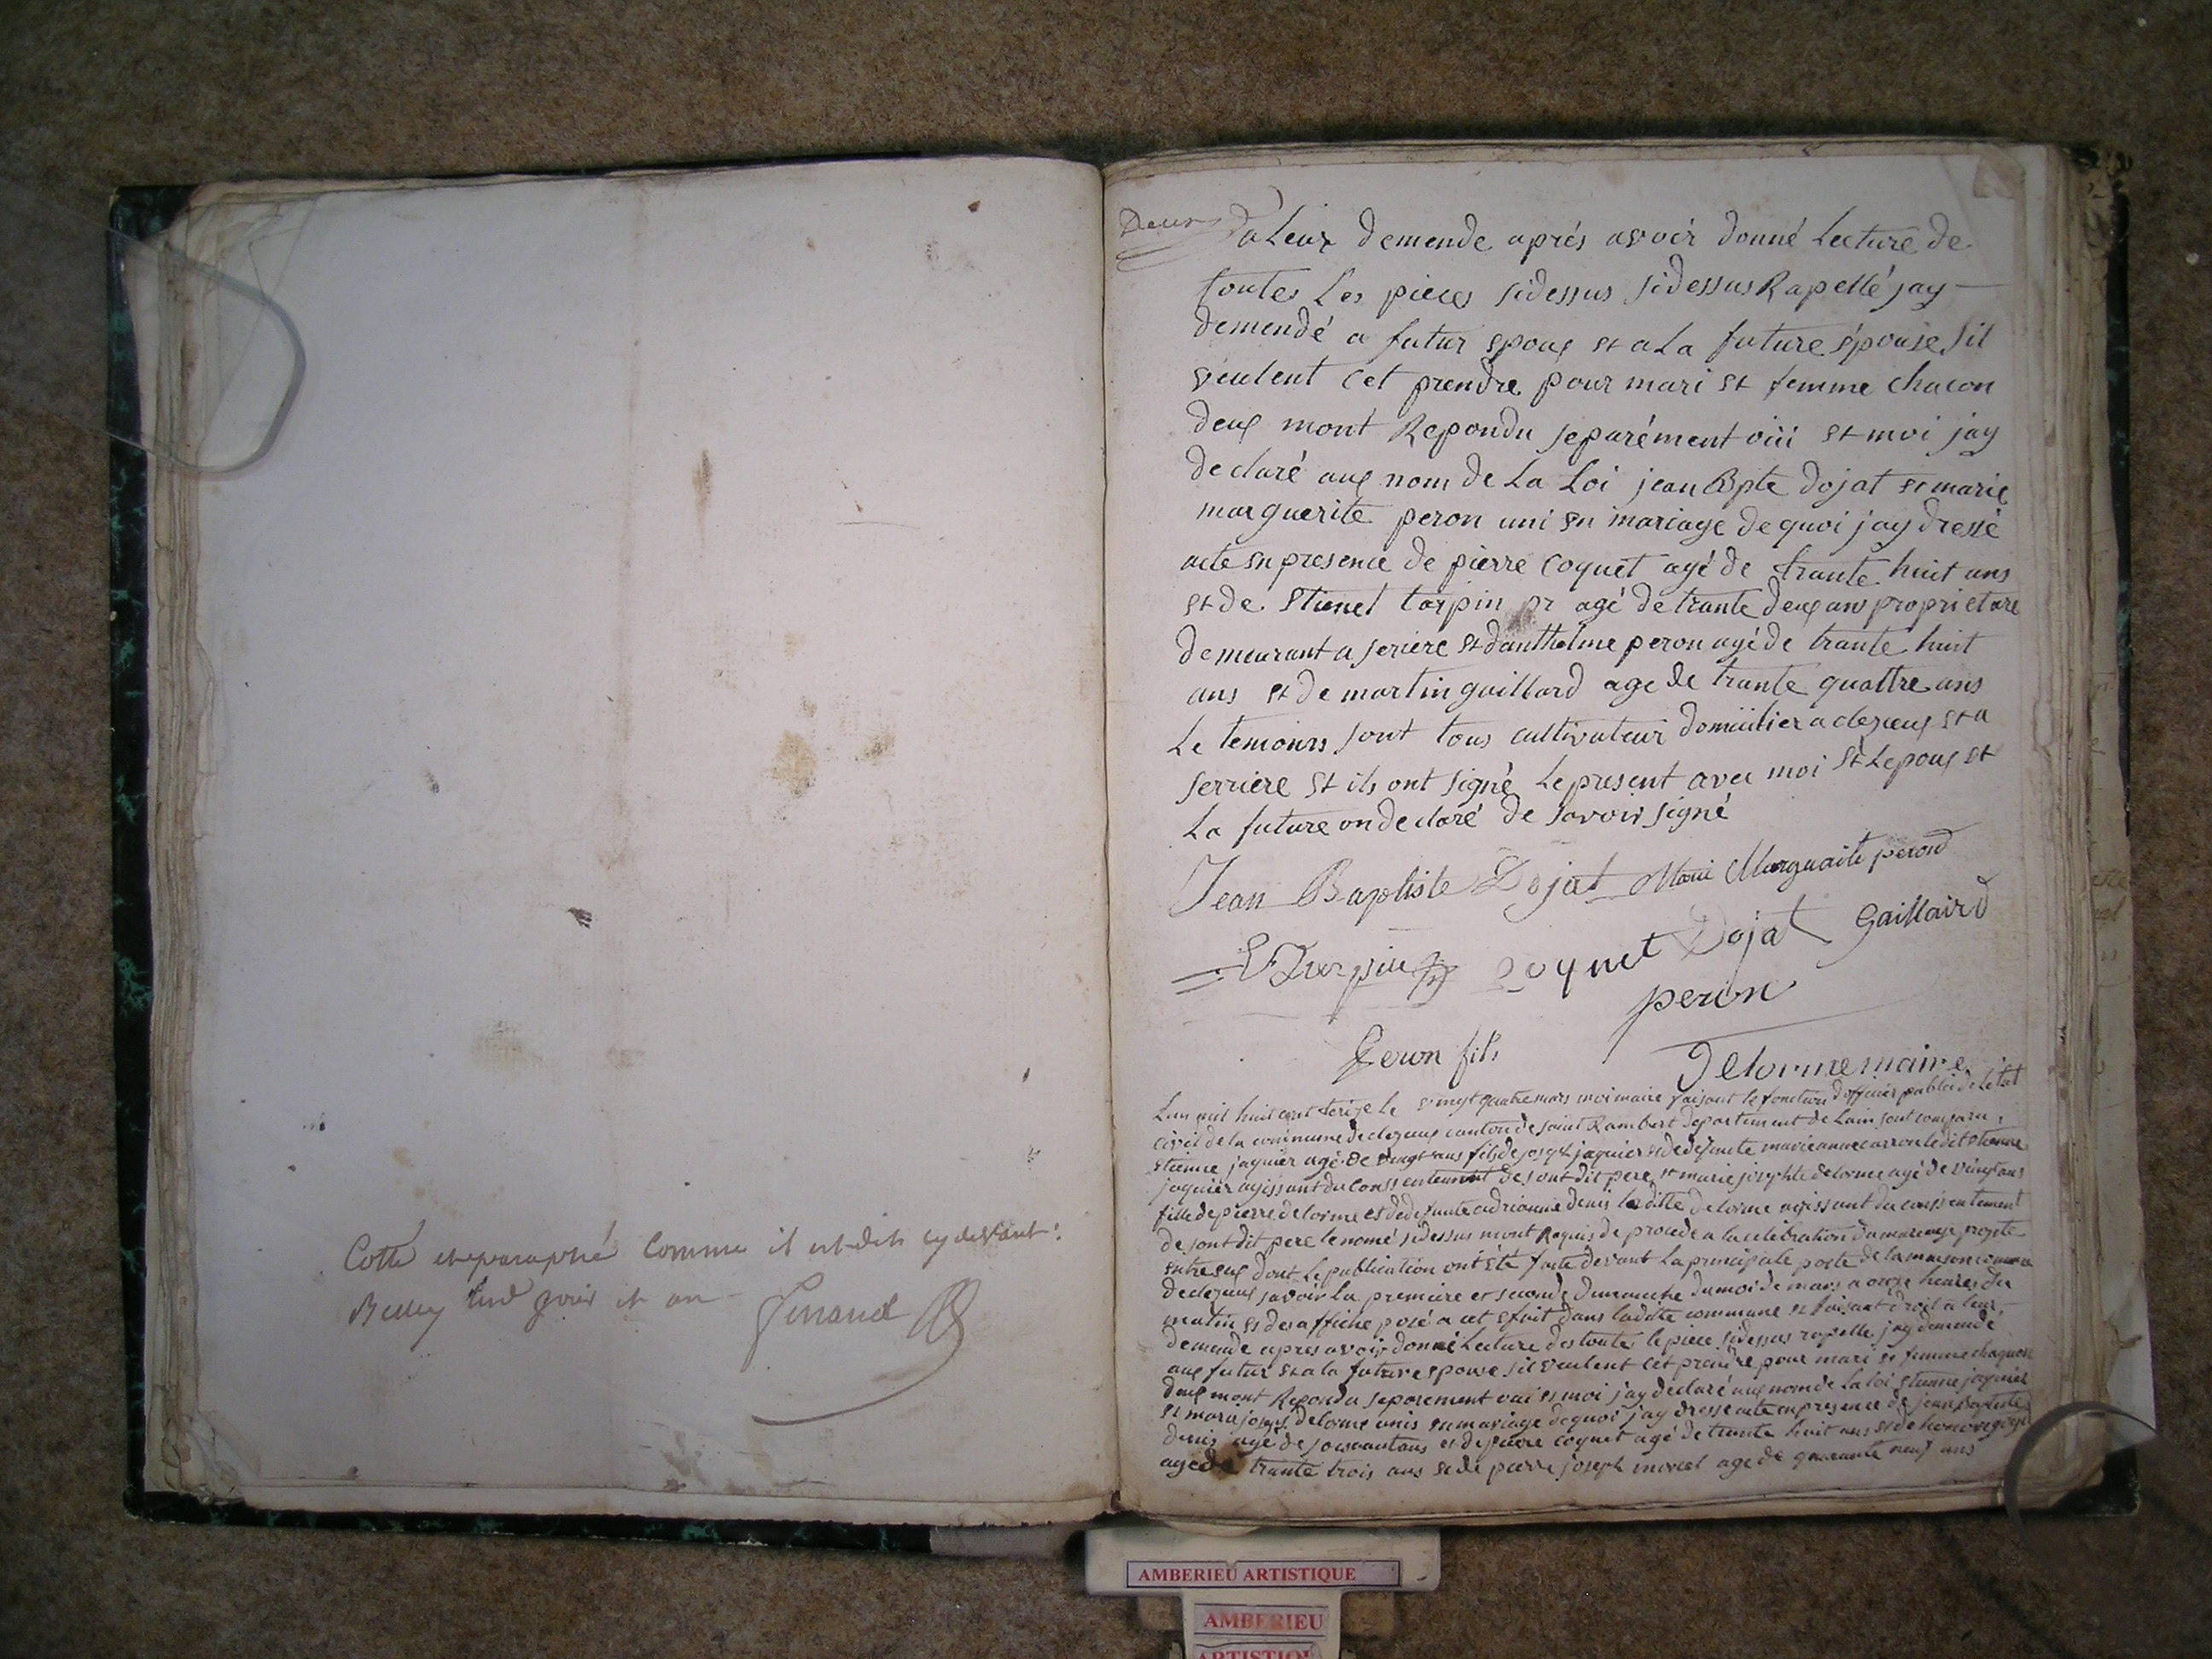 Cotté et paraphé comme il est dit cy devant.
Belley jour et an
Deux
a Leur demende aprés avoir donné Lecture de
toutes Les pieces sidessus sidessus Rapellé jay
demendé a futur epoux et a La future épouse sil
veulent cet prendre pour mari et femme chacon
deux mont Repondu separément oüi et moi jay
declaré aux nom de La Loi jean Bpte dojat et marie
marguerite peron uni en mariage de quoi jay dressé
acte en presence de pierre Coquet agé de trante huit ans
et de Etienel tarpin pr agé de trante deux ans proprietare
demeurant a seriere et danthelme peron agé de trante huit
ans et de martin gaillard age de trante quattre ans
Le temoins sont tous cultivateur domiilier a clezieux et a
serriere et ils ont signé Le present avec moi et Lepoux et
La future on declaré de savoir signé
Jean Baptiste Dojat Marie Marguaite perond
Coquet Dojat Gaillaird
peron
Peron fils
Delorme maire
Lan mil huit cent treize le vingt quatre mars moi maire faisant le fonction dofficier public de Letat
civil de la commune de clezieux canton de saint Rambert departement de Lain sont comparu
etienne jaquier agé de vingt ans fils de joseph jaquier et de defunte marie anne carron ledit etienne
jaquier agissant du conssentement de sont dit pere et marie josephte delorme agé de vingt ans
fille de pierre delorme et de defunte adrianne denis laditte delorme agissant du conssentement
de sont dit pere le nomé sidessus mont Requis de procede a la celebration du mareage projete
entre eux dont le publication ont été faite devant La principale porte de la maison commune
de clezieux savoir La premiere et seconde dimanche du moi de mars a onze heures du
matin et des affiche posé a cet efait dans ladite commune et faisant droit a leur
demande apres avoir donné Lecture des toutes le piece sidessus rapelle jay demendé
aux futur et a la future epouse sil veulent cet prendre pour mari et femme chaquon
deux mont Repondu separement oui et moi jay declaré aux nom de La loi etienne jaquier
et delorme unis en mariage de quoi jay dresse acte en presence de jean baptiste
denis agé de soixante ans et de pierre coquet agé de trante huit ans et de
age de trante trois ans et de pierre joseph age de quarante neuf ans
AMBERIEU ARTISTIQUE
AMBERIEU
ARTISTIQUE